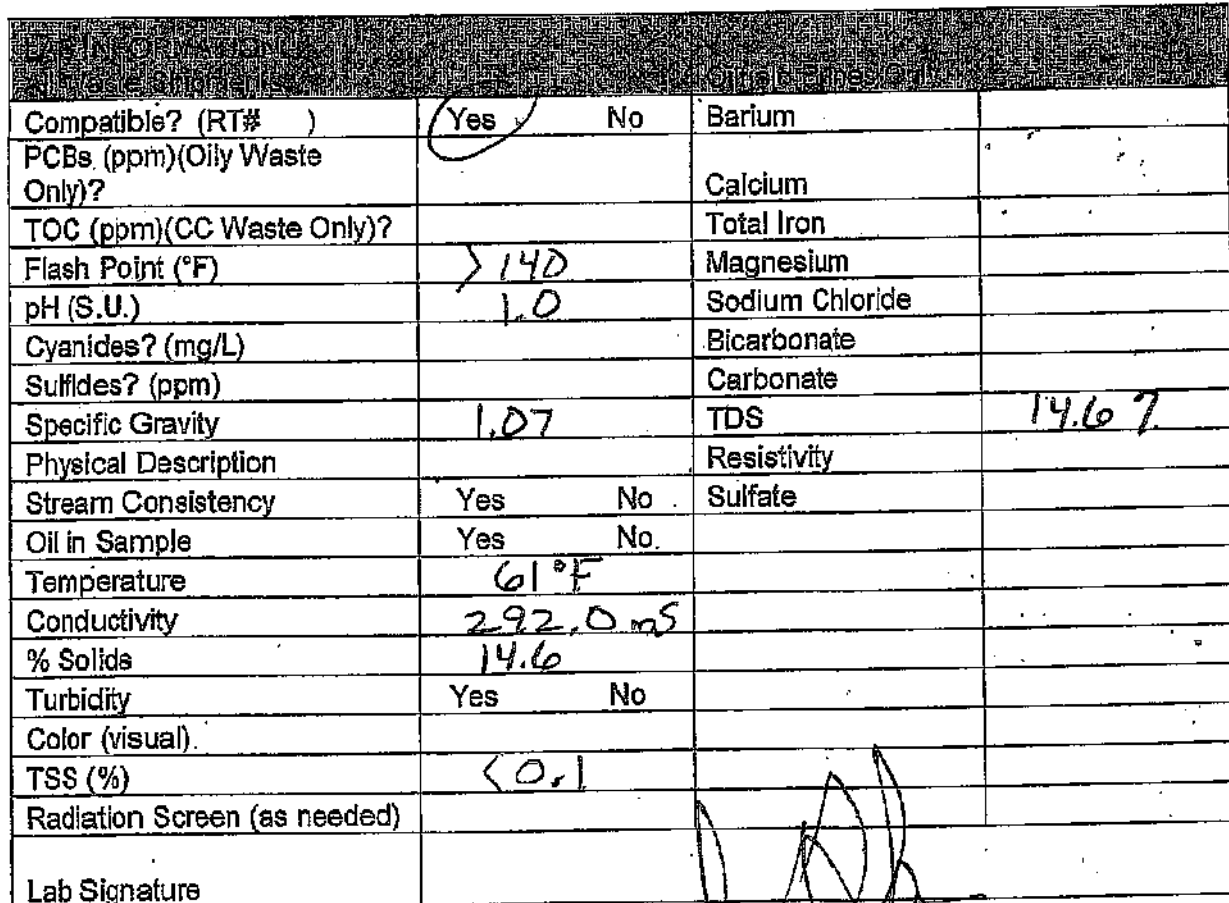 LAB INFORMATION
Compatible? (RT# ) Yes No Barium
PCBs (ppm)(Oily Waste
Only)? Calcium
TOC (ppm)(CC Waste Only)? Total Iron
Flash Point (°F) >140 Magnesium
pH (S.U.) 1.0 Sodium Chloride
Cyanides? (mg/L) Bicarbonate
Sulfides? (ppm) Carbonate
Specific Gravity 1.07 TDS 14.6 %
Physical Description Resistivity
Stream Consistency Yes No Sulfate
Oil in Sample Yes No
Temperature 61°F
Conductivity 292.0 mS
% Solids 14.6
Turbidity Yes No
Color (visual)
TSS (%) <0.1
Radiation Screen (as needed)
Lab Signature